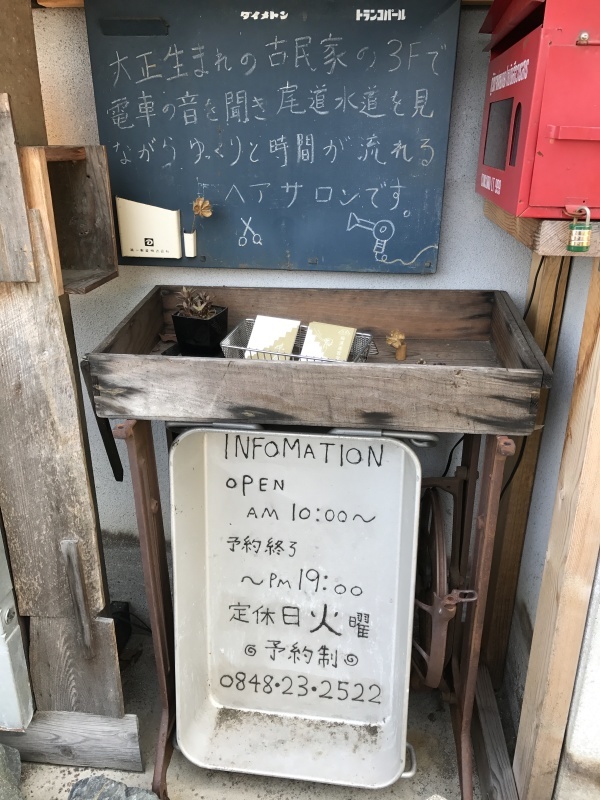 ダイメトン トランコパール
大正生まれの古民家の3Fで
電車の音を聞き尾道水道を見
ながらゆっくりと時間が流れる
ヘアサロンです。
INFOMATION
OPEN
AM 10:00〜
予約終了
〜PM 19:00
定休日火曜
予約制
0848・23・2522